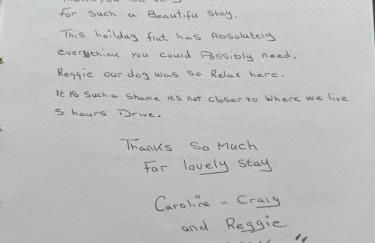 for such a Beautifu Stay.
This hoilday flat has Absolutely
everythink you could Possibly need.
Reggie our dog was so Relax here.
It is such a shame it's not closer to where we live
5 hours Drive.
Thanks So Much
For lovely Stay
Caroline - Craig
and Reggie